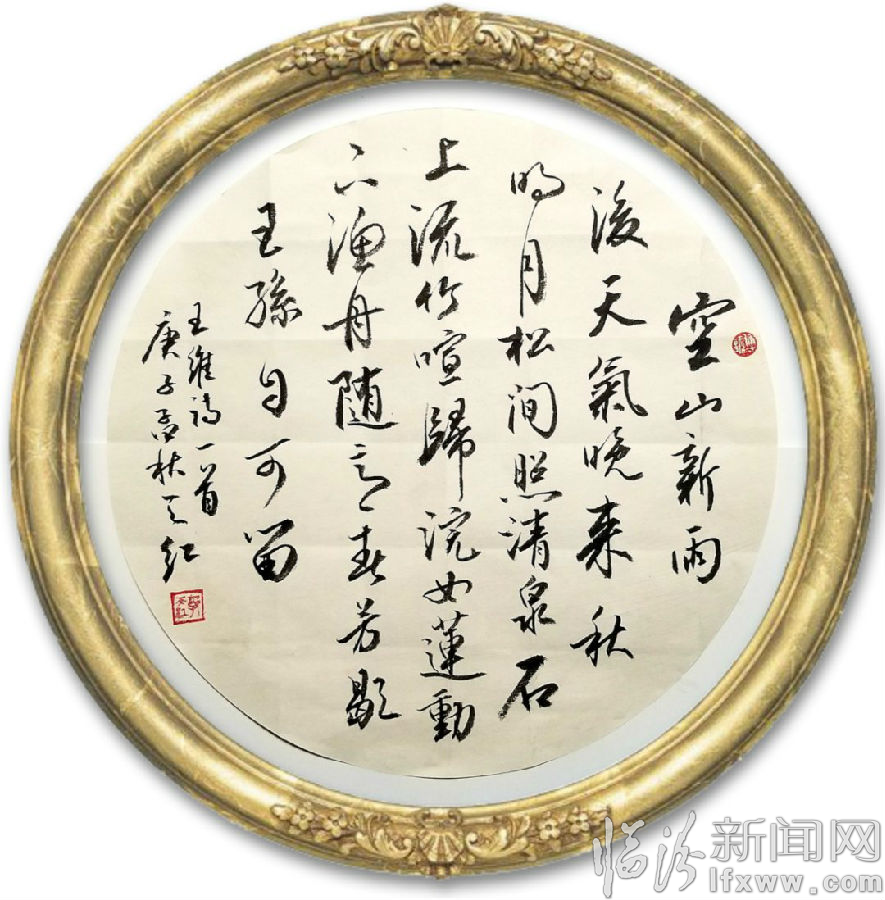 空山新雨
後天氣晚来秋
明月松間照清泉石
上流竹喧歸浣女蓮動
下漁舟随意春芳歇
王孫自可留
王維诗一首
庚子孟秋天红
临汾新闻网
lfxww.com.